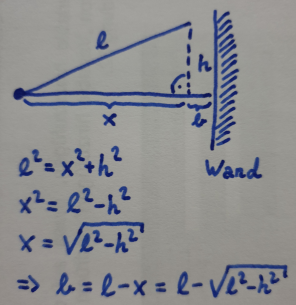 l
h
x
b
Wand
l² = x² + h²
x² = l² - h²
x = √(l² - h²)
=> b = l - x = l - √(l² - h²)